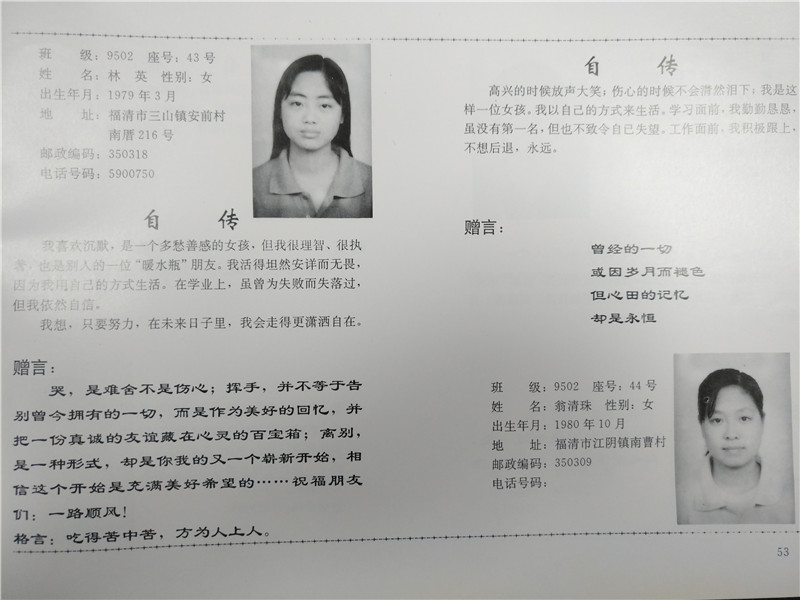 班　　级：9502　座号：43号
姓　　名：林　英　性别：女
出生年月：1979年3月
地　　址：福清市三山镇安前村
南厝216号
邮政编码：350318
电话号码：5900750
自　传
我喜欢沉默，是一个多愁善感的女孩，但我很理智、很执
著，也是别人的一位“暖水瓶”朋友。我活得坦然安详而无畏，
因为我用自己的方式生活。在学业上，虽曾为失败而失落过，
但我依然自信。
我想，只要努力，在未来日子里，我会走得更潇洒自在。
赠言：
哭，是难舍不是伤心；挥手，并不等于告
别曾今拥有的一切，而是作为美好的回忆，并
把一份真诚的友谊藏在心灵的百宝箱；离别，
是一种形式，却是你我的又一个崭新开始，相
信这个开始是充满美好希望的……祝福朋友
们：一路顺风！
格言：吃得苦中苦，方为人上人。
自　传
高兴的时候放声大笑；伤心的时候不会潸然泪下；我是这
样一位女孩。我以自己的方式来生活。学习面前，我勤勤恳恳，
虽没有第一名，但也不致令自己失望。工作面前，我积极跟上，
不想后退，永远。
赠言：
曾经的一切
或因岁月而褪色
但心田的记忆
却是永恒
班　　级：9502　座号：44号
姓　　名：翁清珠　性别：女
出生年月：1980年10月
地　　址：福清市江阴镇南曹村
邮政编码：350309
电话号码：
53